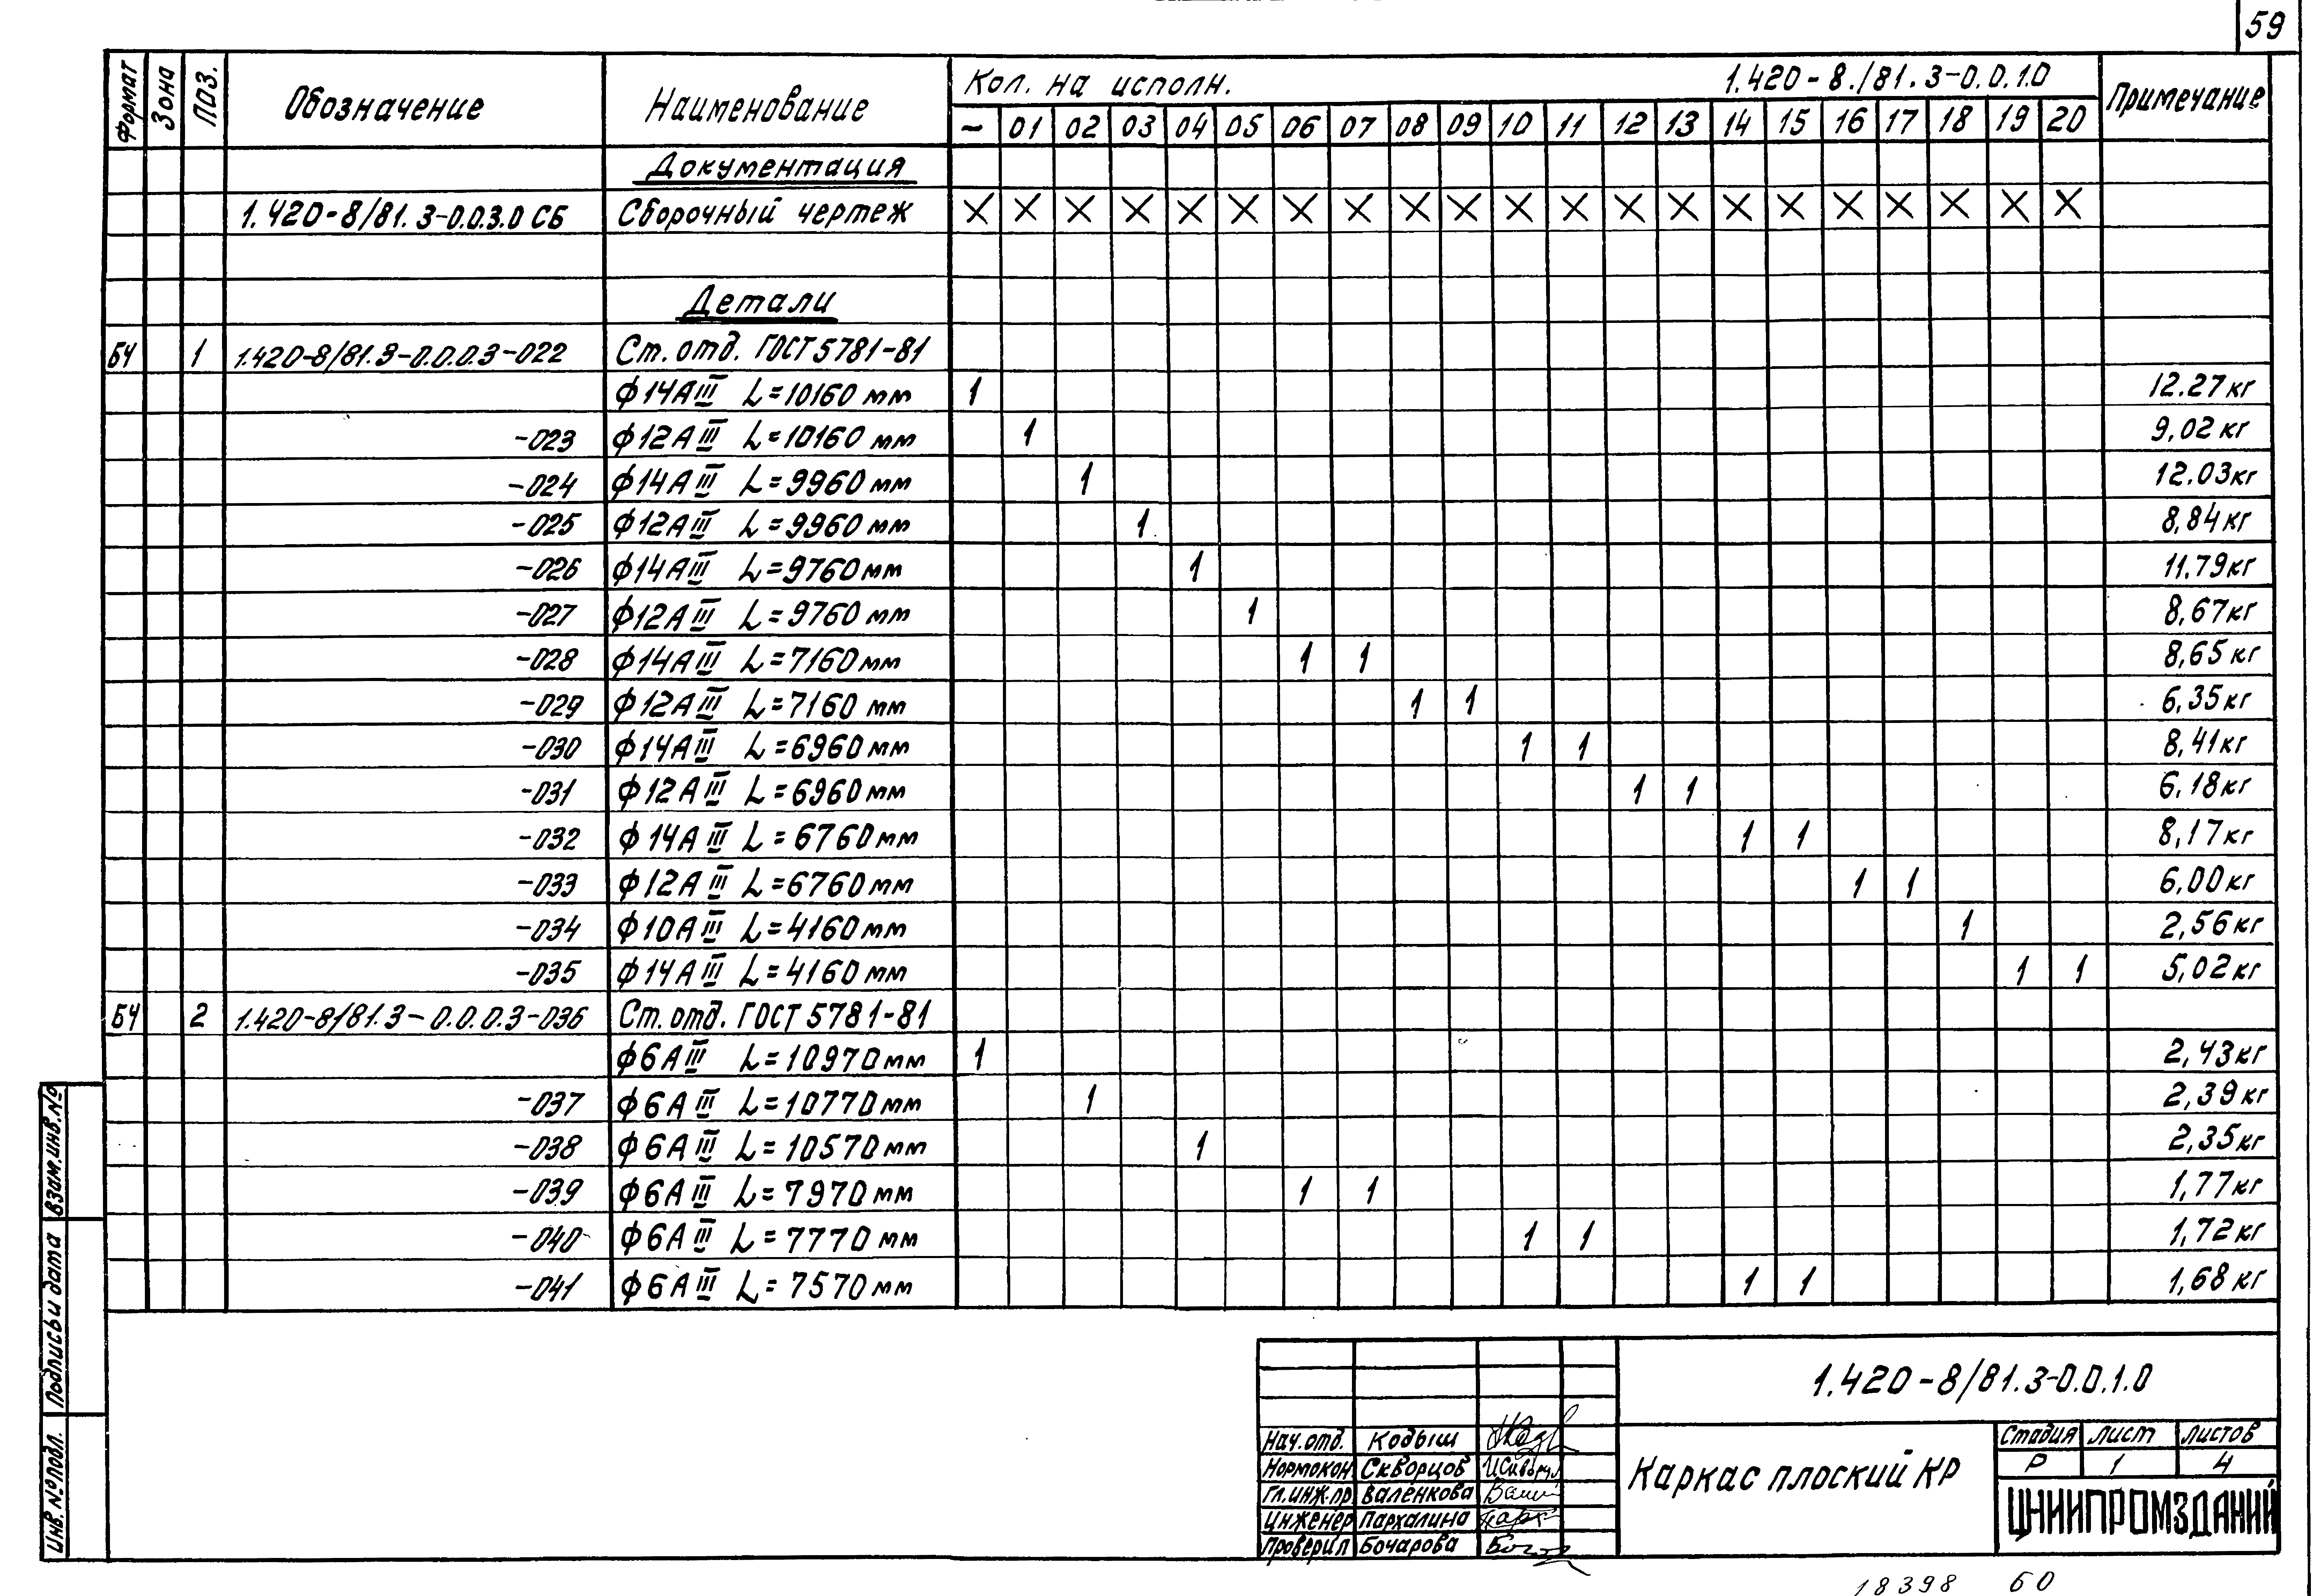 59
Формат Зона Поз. Обозначение Наименование Кол. на исполн. 1.420-8./81.3-0.0.1.0 Примечание
– 01 02 03 04 05 06 07 08 09 10 11 12 13 14 15 16 17 18 19 20
Документация
1.420-8/81.3-0.0.3.0 СБ Сборочный чертеж X X X X X X X X X X X X X X X X X X X X X
Детали
БЧ 1 1.420-8/81.3-0.0.0.3-022 Ст. отд. ГОСТ 5781-81
ф14АIII L=10160 мм 1 12.27кг
-023 ф12АIII L=10160 мм 1 9,02 кг
-024 ф14АIII L=9960 мм 1 12.03кг
-025 ф12АIII L=9960 мм 1 8,84кг
-026 ф14АIII L=9760мм 1 11.79кг
-027 ф12АIII L=9760мм 1 8,67кг
-028 ф14АIII L=7160мм 1 1 8,65 кг
-029 ф12АIII L=7160 мм 1 1 6,35кг
-030 ф14АIII L=6960мм 1 1 8,41кг
-031 ф12АIII L=6960мм 1 1 6,18кг
-032 ф14АIII L=6760мм 1 1 8,17кг
-033 ф12АIII L=6760мм 1 1 6,00кг
-034 ф10АIII L=4160мм 1 2,56кг
-035 ф14АIII L=4160мм 1 1 5,02кг
БЧ 2 1.420-8/81.3-0.0.0.3-036 Ст. отд. ГОСТ 5781-81
ф6АIII L=10970мм 1 2,43кг
-037 ф6АIII L=10770мм 1 2,39кг
-038 ф6АIII L=10570мм 1 2,35кг
-039 ф6АIII L=7970мм 1 1 1,77кг
-040 ф6АIII L=7770мм 1 1 1,72кг
-041 ф6АIII L=7570мм 1 1 1,68 кг
Инв. № подл. Подпись и дата Взам. инв. №
1.420-8/81.3-0.0.1.0
Нач. отд. Кодыш
Нормокон Скворцов
Гл. инж. пр Валенкова
Инженер Пархалина
Проверил Бочарова
Каркас плоский КР
Стадия Лист Листов
Р 1 4
ЦНИИПРОМЗДАНИЙ
18398 60